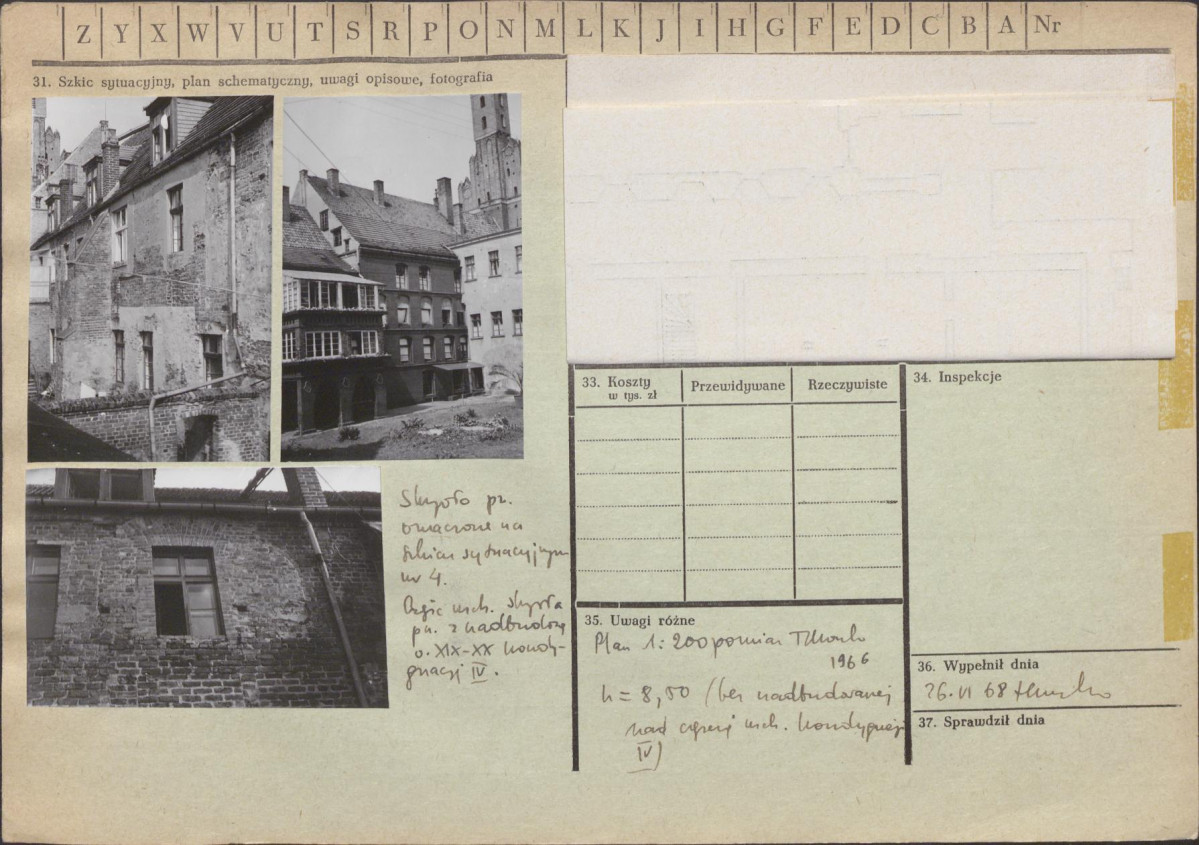 Z Y X W V U T S R P O N M L K J I H G F E D C B A Nr
31. Szkic sytuacyjny, plan schematyczny, uwagi opisowe, fotografia
Skrzydło pn.
oznaczone na
szkicu sytuacyjnym
nr 4.
Część wsch. skrzydła
pn. z nadbudową
o. XIX-XX kondy-
gnacji IV.
33. Koszty
w tys. zł
Przewidywane
Rzeczywiste
34. Inspekcje
35. Uwagi różne
Plan 1:200 pomiar
1966
h = 8,50 (bez nadbudowanej
nad częścią wsch. kondygnacji
IV)
36. Wypełnił dnia
26.VI 68
37. Sprawdził dnia